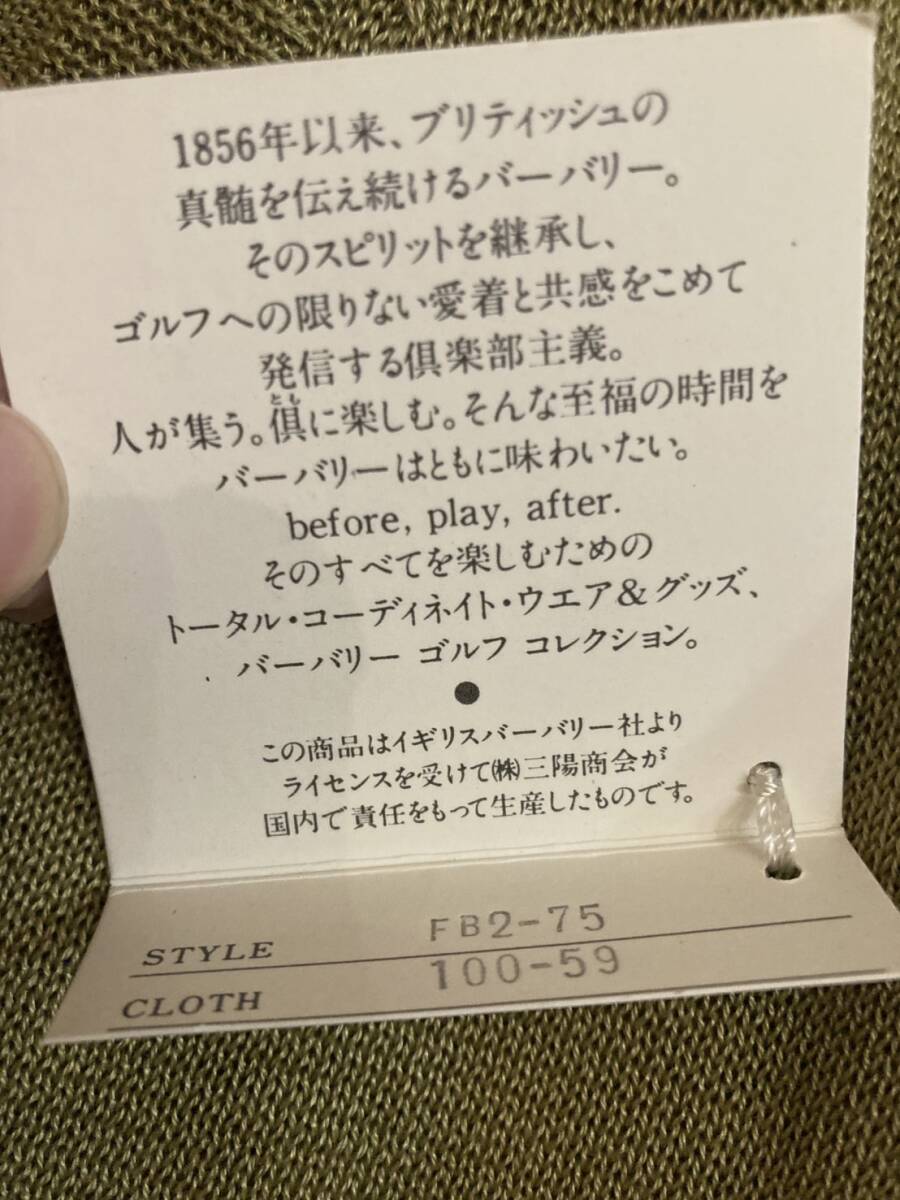 1856年以来、ブリティッシュの
真髄を伝え続けるバーバリー。
そのスピリットを継承し、
ゴルフへの限りない愛着と共感をこめて
発信する倶楽部主義。
人が集う。倶に楽しむ。そんな至福の時間を
バーバリーはともに味わいたい。
before, play, after.
そのすべてを楽しむための
トータル・コーディネイト・ウエア&グッズ、
バーバリー ゴルフ コレクション。
●
この商品はイギリスバーバリー社より
ライセンスを受けて㈱三陽商会が
国内で責任をもって生産したものです。
STYLE FB2-75
CLOTH 100-59